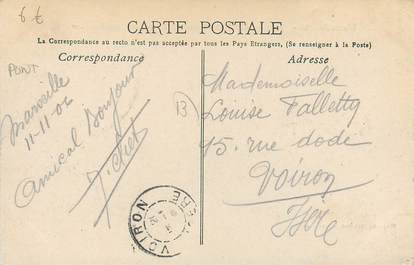 6 €
CARTE POSTALE
La Correspondance au recto n'est pas acceptée par tous les Pays Etrangers, (Se renseigner à la Poste)
Correspondance
Adresse
PONT
Marseille
11-11-06
Amical Bonjour
B
Mademoiselle
Louise Falletty
45 rue dode
Voiron
Isère
VOIRON
ISERE